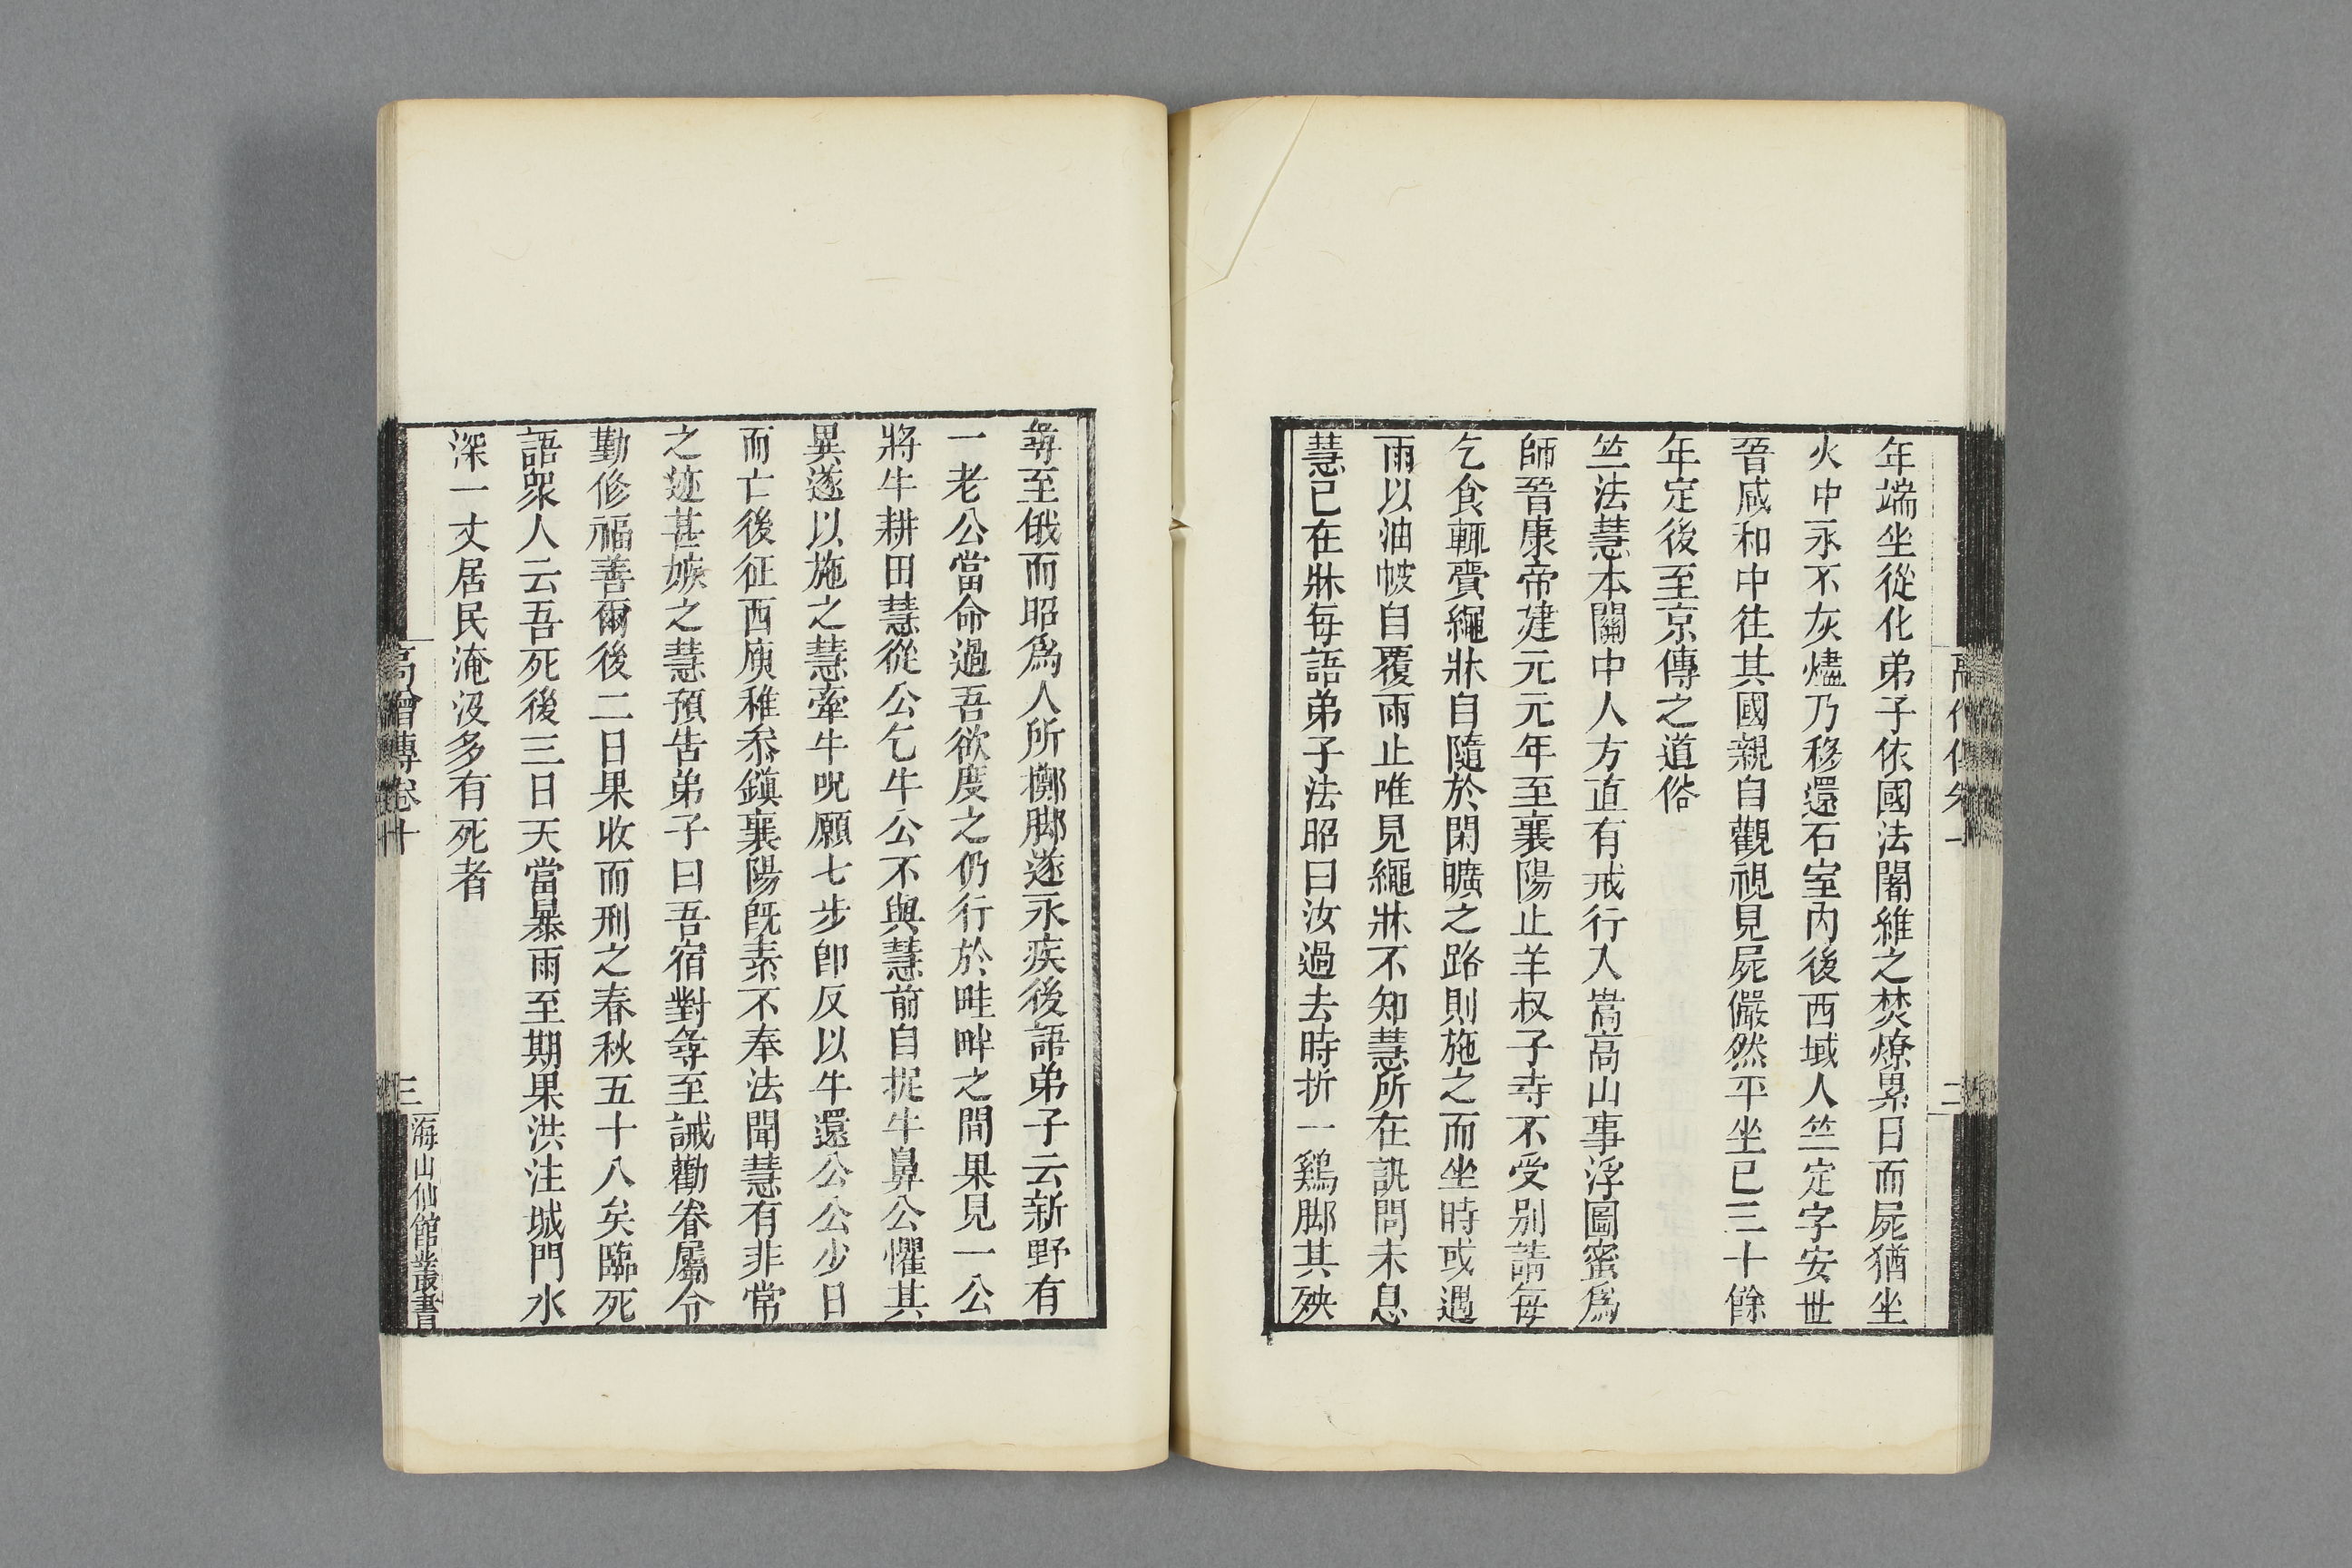 年端坐從化弟子依國法闍維之焚燎累日而屍猶坐
火中永不灰燼乃移還石室內後西域人竺定字安世
晉咸和中往其國親自觀視見屍儼然平坐已三十餘
年定後至京傳之道俗
竺法慧本關中人方直有戒行入嵩高山事浮圖蜜爲
師晉康帝建元元年至襄陽止羊叔子寺不受別請每
乞食輒賷繩牀自隨於閑曠之路則施之而坐時或遇
雨以油帔自覆雨止唯見繩牀不知慧所在訊問未息
慧已在牀每語弟子法昭曰汝過去時折一鷄脚其殃
尋至俄而昭爲人所擲脚遂永疾後語弟子云新野有
一老公當命過吾欲度之仍行於畦畔之間果見一公
將牛耕田慧從公乞牛公不與慧前自捉牛鼻公懼其
異遂以施之慧牽牛呪願七步卽反以牛還公公少日
而亡後征西庾稚恭鎭襄陽旣素不奉法聞慧有非常
之迹甚嫉之慧預告弟子曰吾宿對尋至誡勸眷屬令
勤修福善爾後二日果收而刑之春秋五十八矣臨死
語眾人云吾死後三日天當暴雨至期果洪注城門水
深一丈居民淹沒多有死者
高僧傳卷十
三
海山仙館叢書